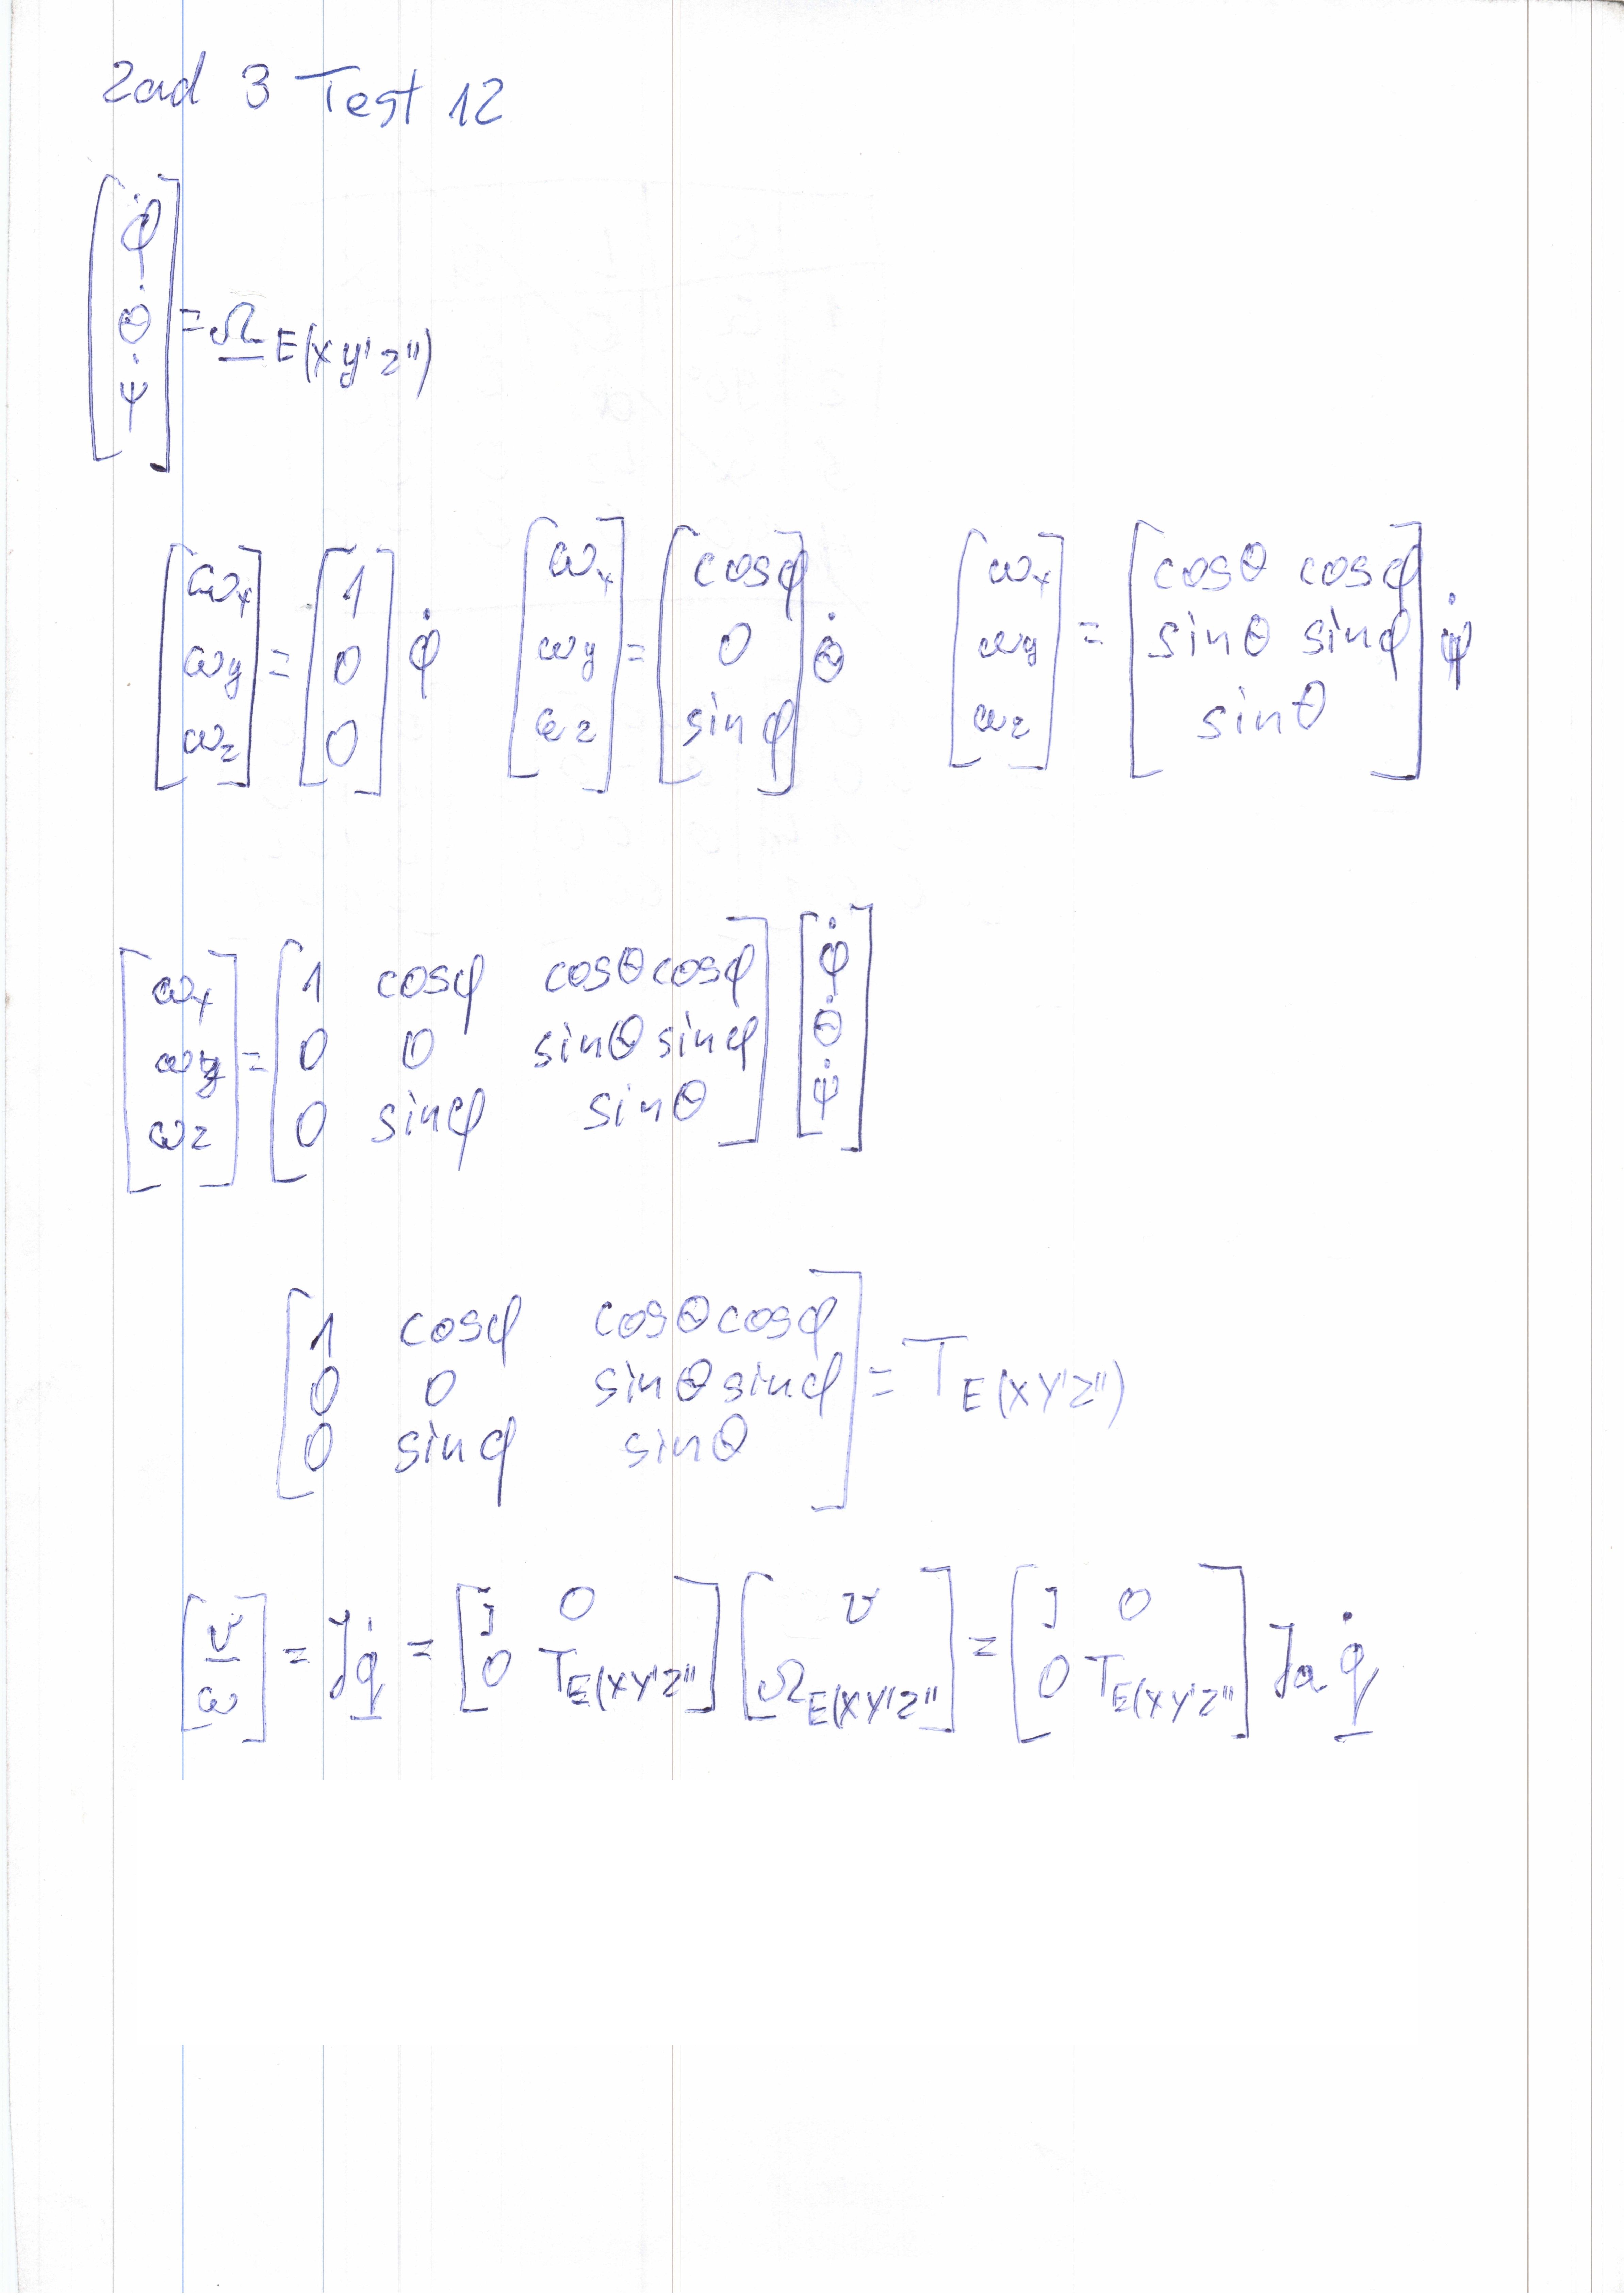 Zad 3 Test 12
[φ̇ θ̇ ψ̇] = Ω E(xy'z'')
[ωx ωy ωz] = [1 0 0] φ̇   [ωx ωy ωz] = [cosφ 0 sinφ] θ̇   [ωx ωy ωz] = [cosθ cosφ sinθ sinφ sinθ] ψ̇
[ωx ωy ωz] = [1 cosφ cosθcosφ
0 0 sinθ sinφ
0 sinφ sinθ] [φ̇ θ̇ ψ̇]
[1 cosφ cosθcosφ
0 0 sinθ sinφ
0 sinφ sinθ] = T E(XY'Z'')
[v ω] = J q̇ = [I 0 0 T E(XY'Z''] [v Ω E(XY'Z''] = [I 0 0 T E(XY'Z''] Ja q̇